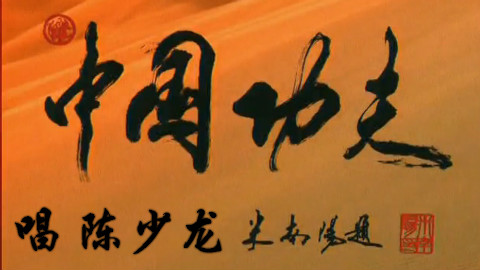 中国功夫
唱 陈少龙 米南阳题